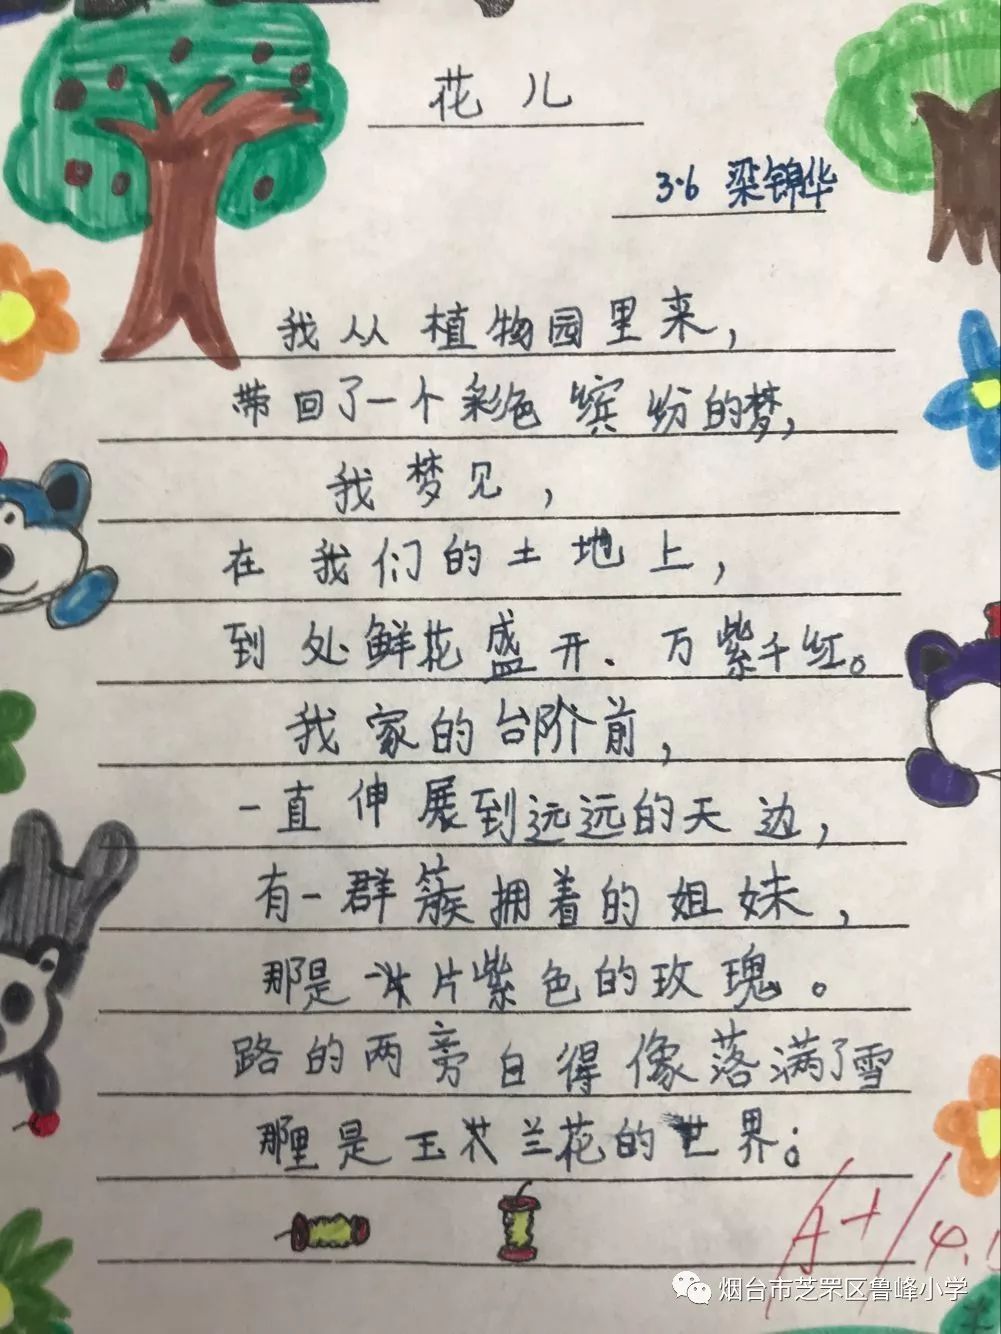 花儿
3.6 梁锦华
我从植物园里来，
带回了一个彩色缤纷的梦，
我梦见，
在我们的土地上，
到处鲜花盛开．万紫千红。
我家的台阶前，
一直伸展到远远的天边，
有一群簇拥着的姐妹，
那是一片紫色的玫瑰。
路的两旁白得像落满了雪
那里是玉兰花的世界；
A+/4.
烟台市芝罘区鲁峰小学